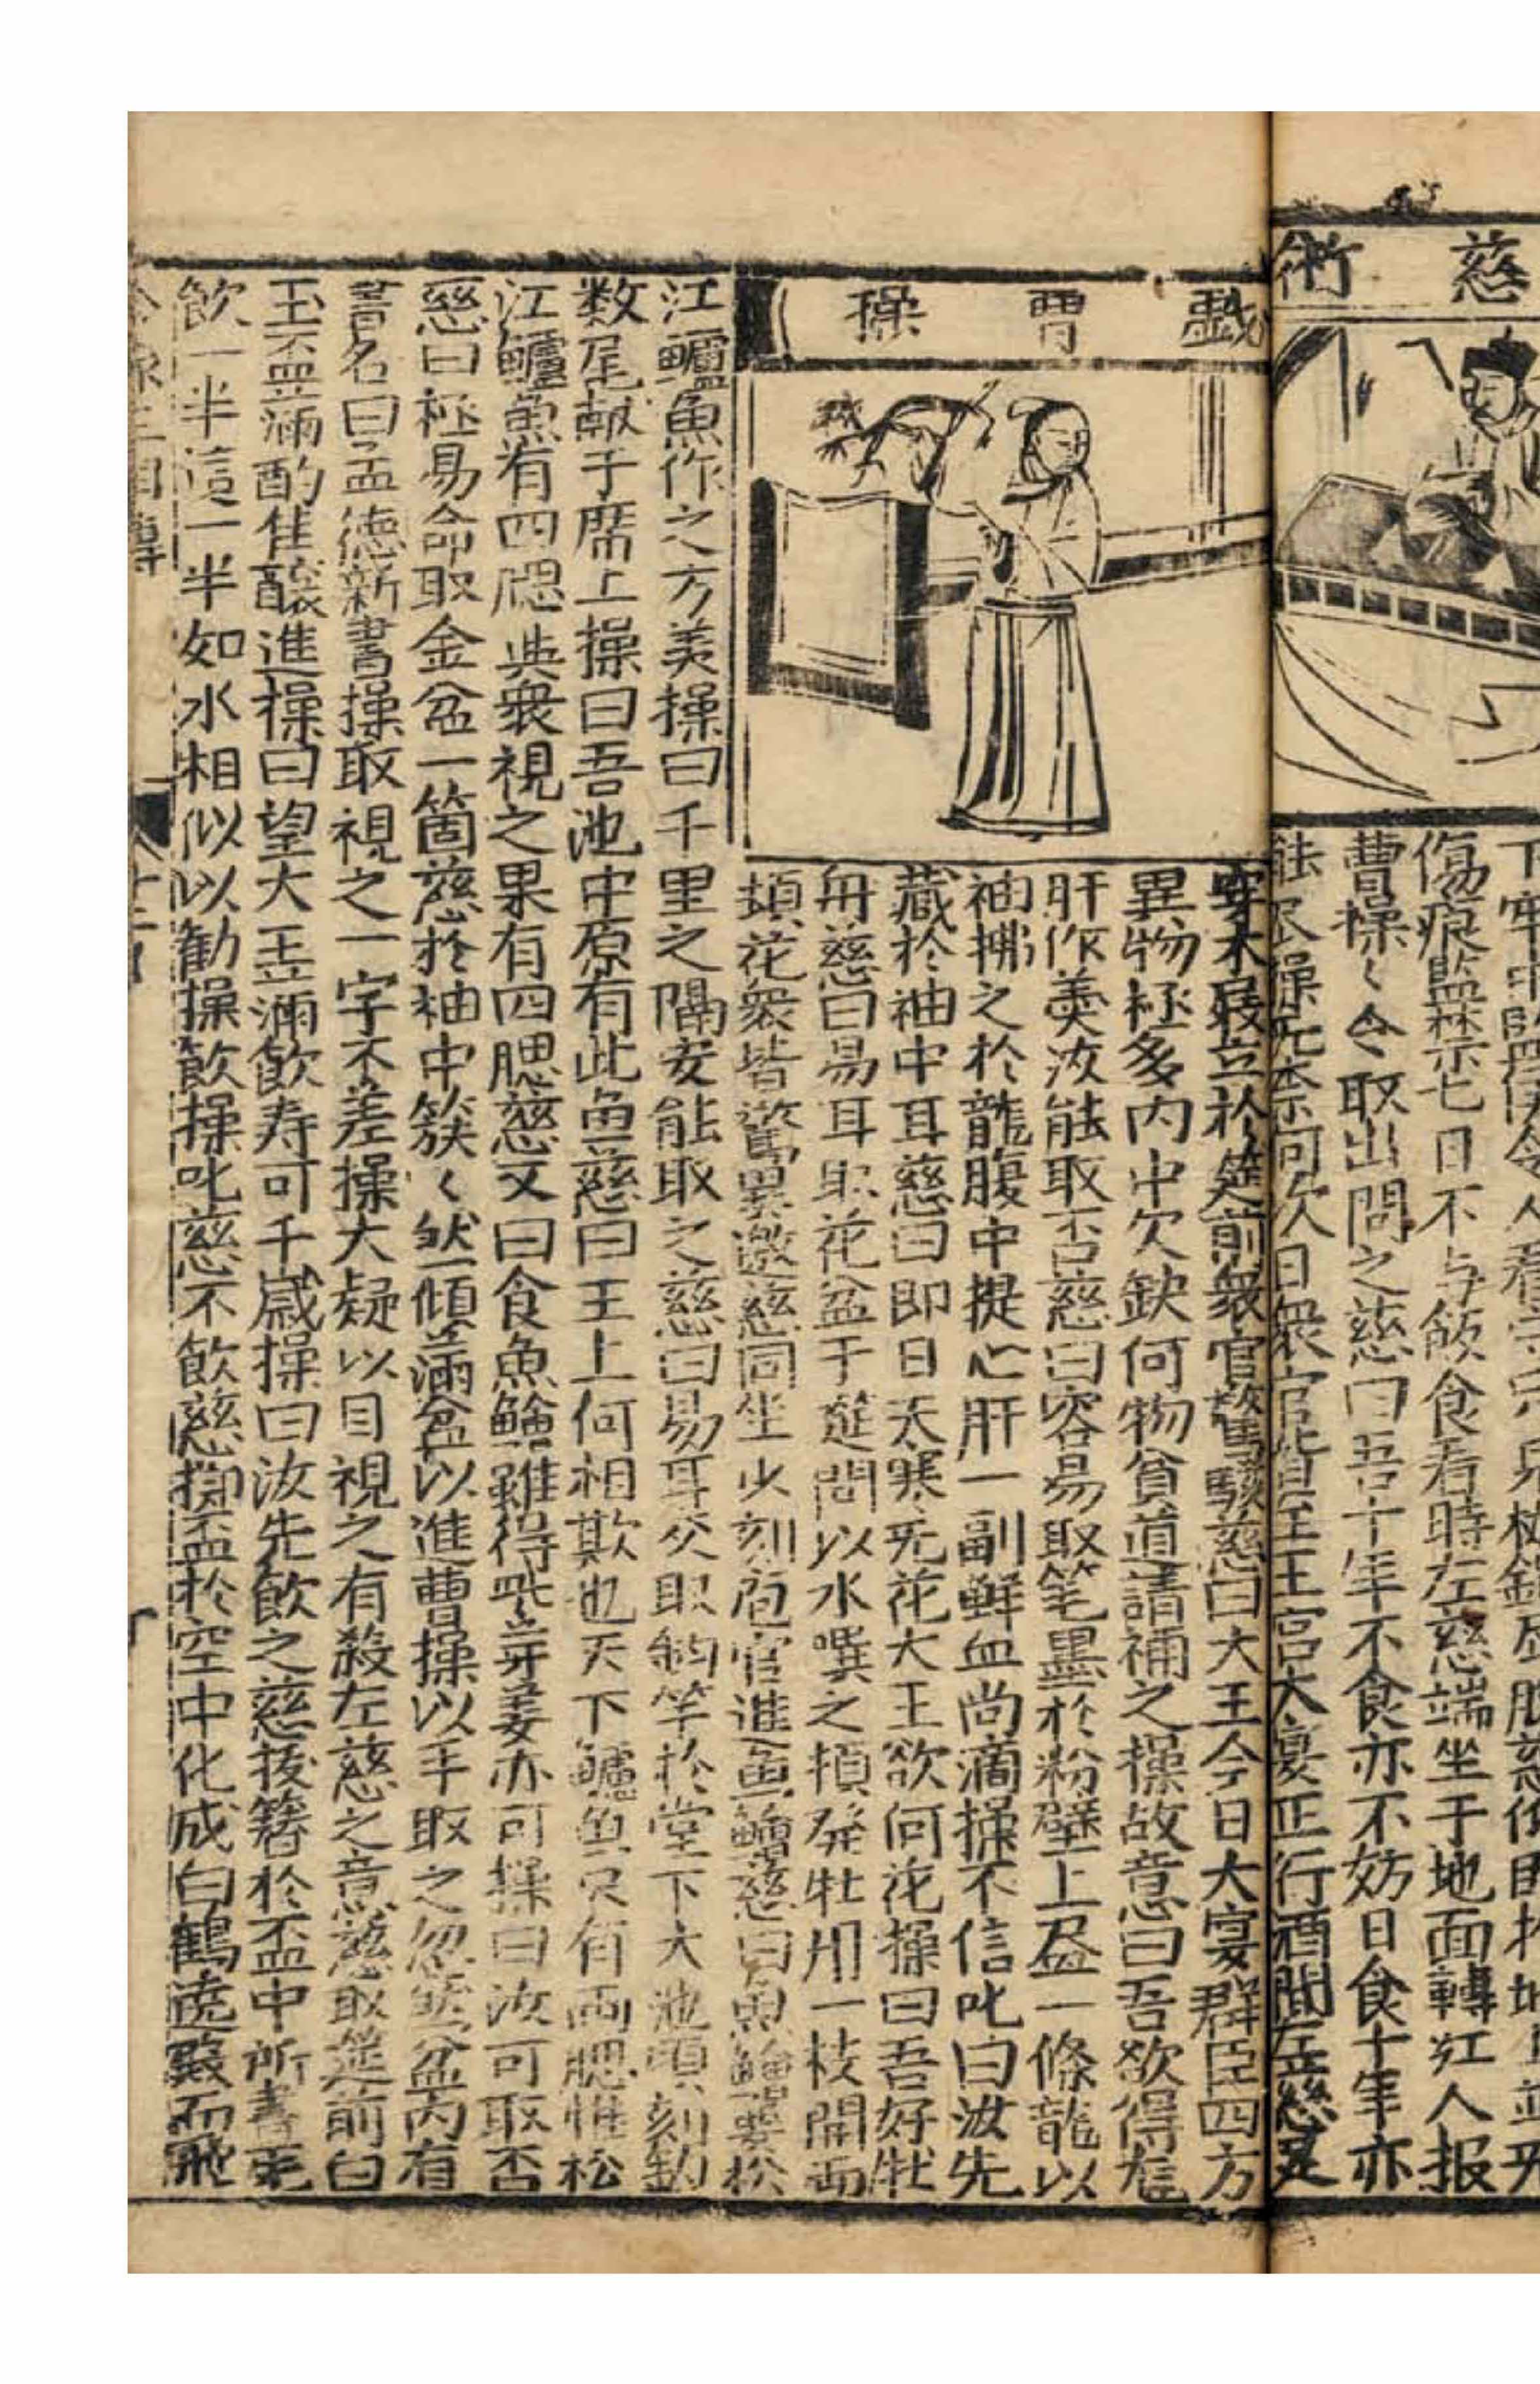 慈術
傷痕監禁七日不与飲食看時左慈端坐于地面轉紅人报
曹操〻令取出問之慈曰吾十年不食亦不妨日食十羊亦
能尽操无奈何次日衆官皆至王宫大宴正行酒間左慈足
戯曹操
穿木屐立於筵前衆官驚駭慈曰大王今日大宴群臣四方
異物極多内中欠缺何物貧道請補之操故意曰吾欲得龙
肝作羙汝能取否慈曰容易取笔墨於粉壁上画一條龍以
袖拂之於龍腹中提心肝一副鮮血尚滴操不信叱曰汝先
藏於袖中耳慈曰即日天寒无花大王欲何花操曰吾好牡
丹慈曰易耳取花盆于筵間以水噀之頃発牡丹一枝開両
頭花衆皆驚異邀慈同坐少刻庖官進魚鱠慈曰魚鱠要松
江鱸魚作之方美操曰千里之隔安能取之慈曰易耳令取釣竿於堂下大池頃刻釣
数尾献于席上操曰吾池中原有此魚慈曰王上何相欺也天下鱸魚只有両腮惟松
江鱸魚有四腮与衆視之果有四腮慈又曰食魚鱠雖得紫芽姜亦可操曰汝可取否
慈曰極易命取金盆一箇慈於袖中簇〻然傾滿盆以進曹操以手取之忽然盆内有
書名曰孟德新書操取視之一字不差操大疑以目視之有殺左慈之意慈取筵前白
玉盃滿酌佳釀進操曰望大王滿飲寿可千歲操曰汝先飲之慈拔簪於盃中所畫
飲一半這一半如水相似以勸操飲操叱慈不飲慈擲盃於空中化成白鶴遶殿而飛